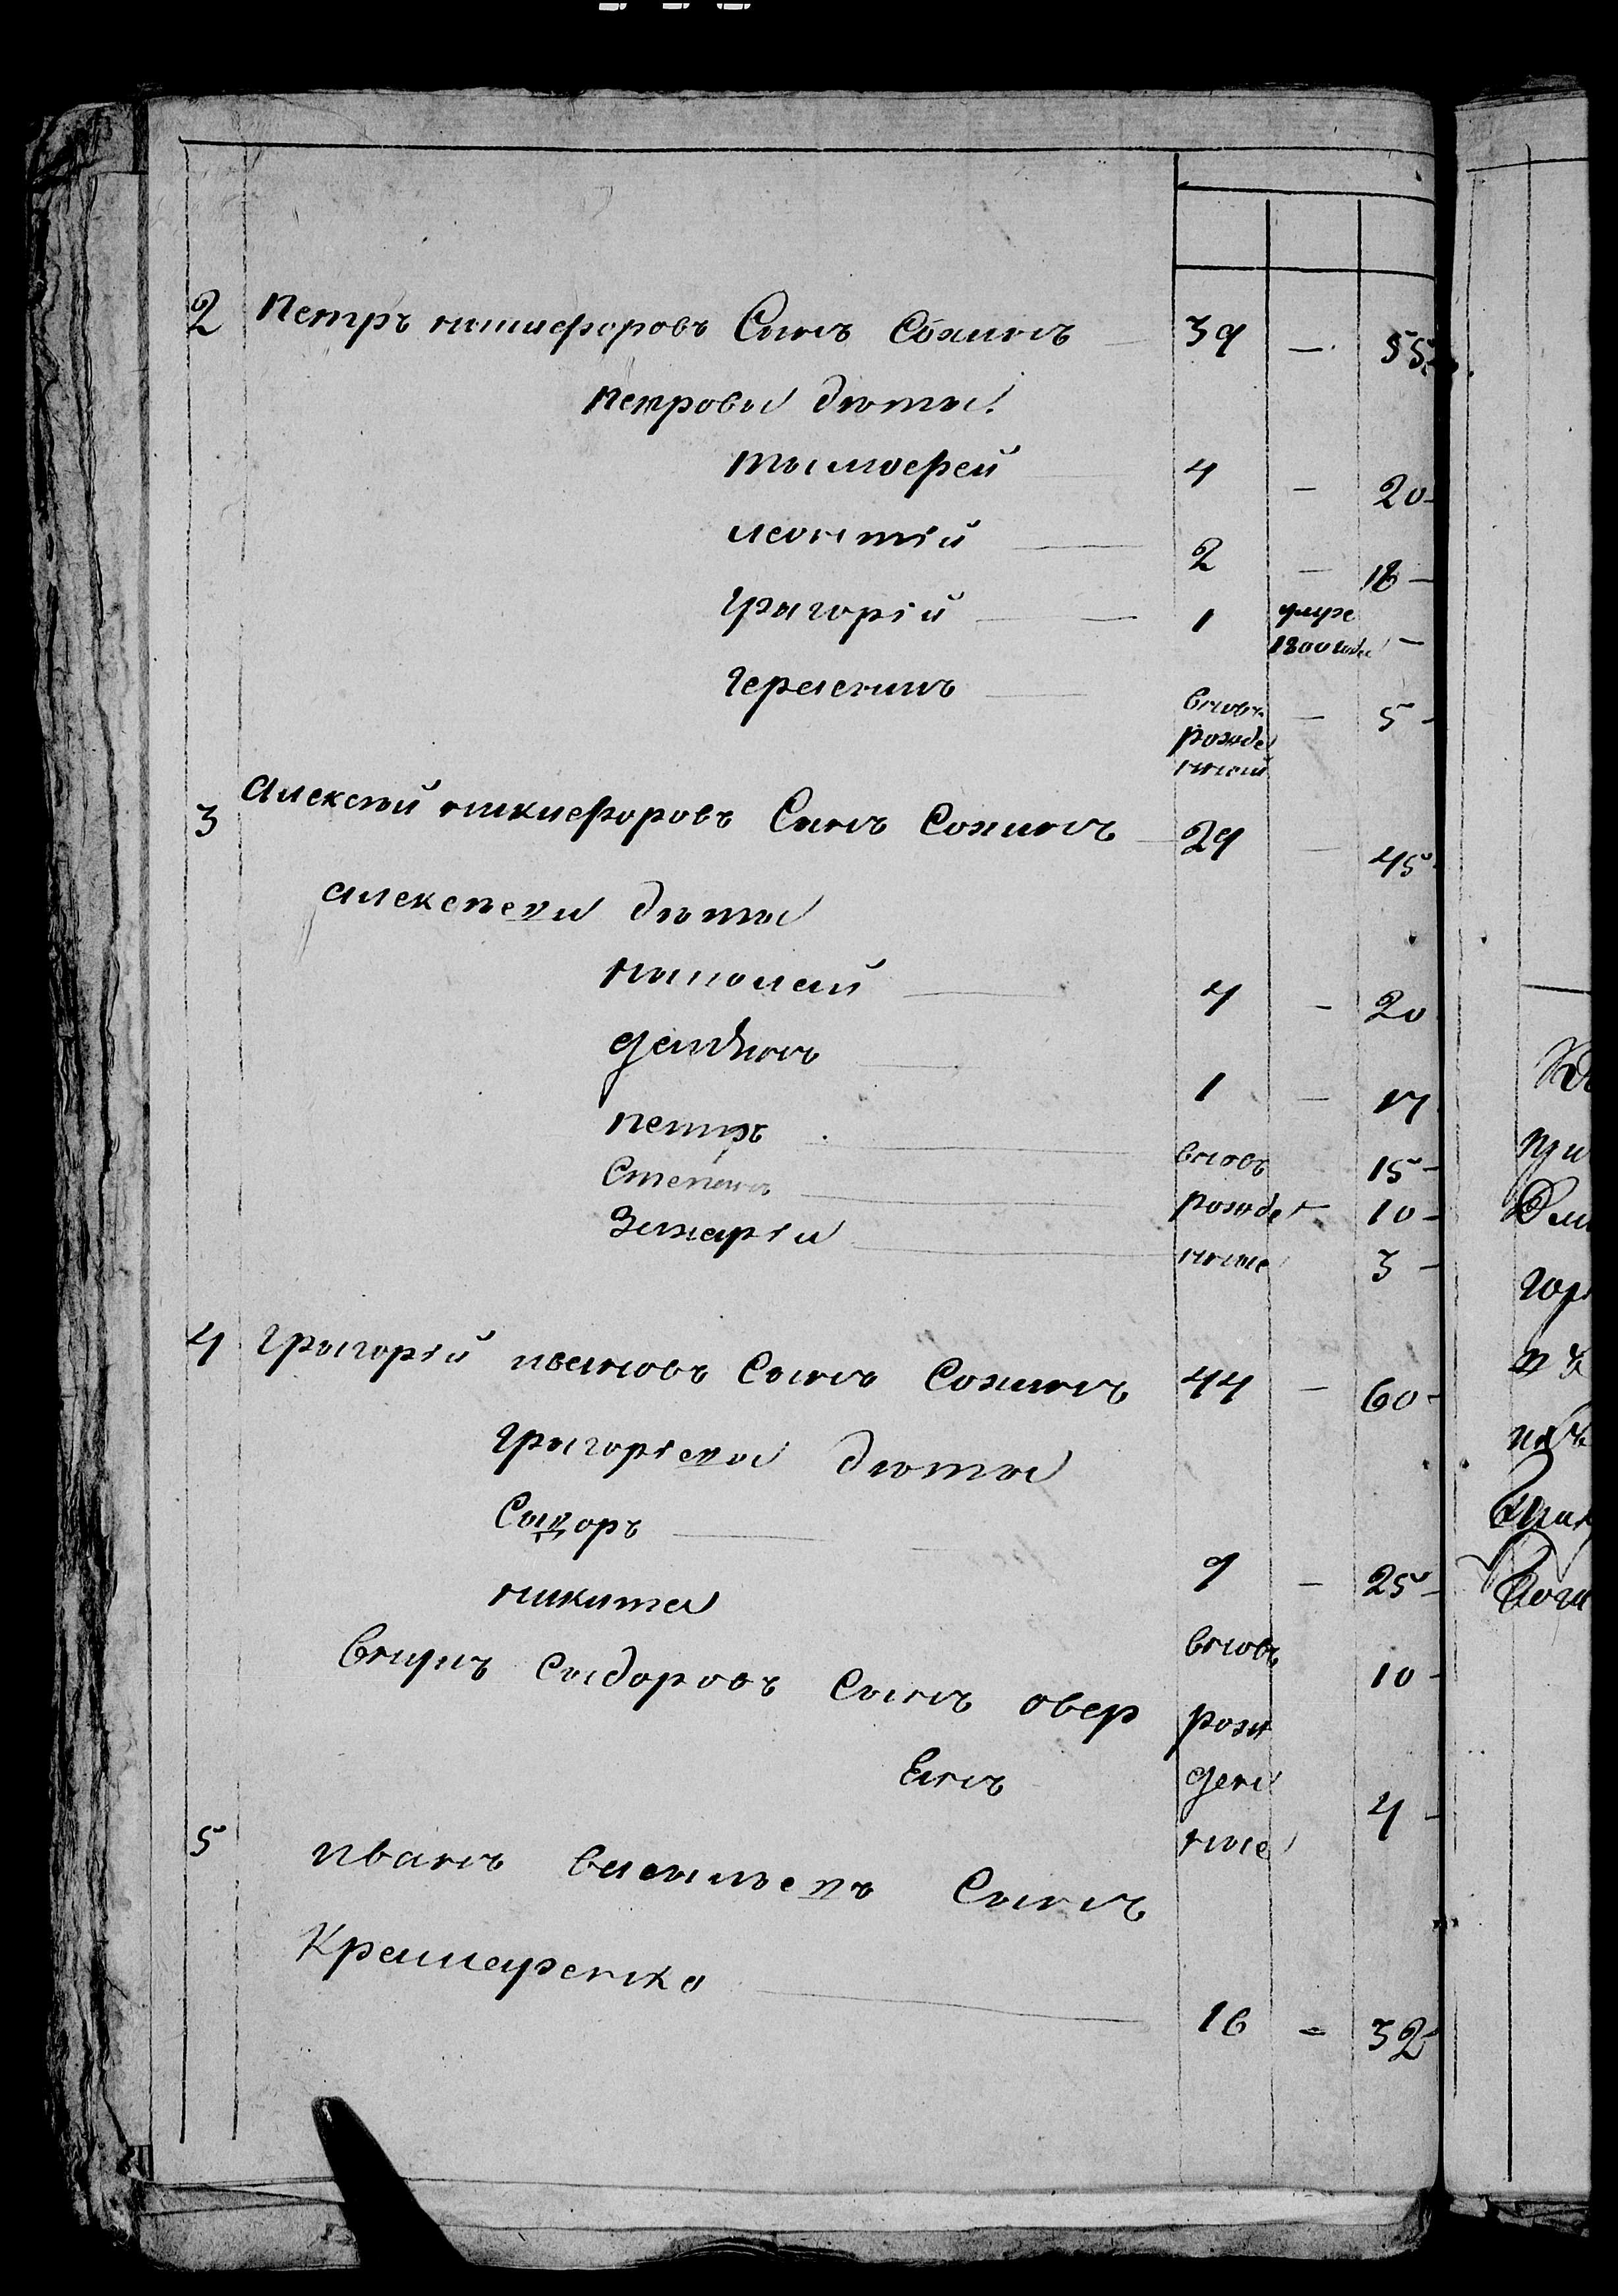 2 Петръ никифоровъ Сынъ Сохинъ 39 — 55
Петровы дѣти
тимофей 4 — 20 —
леонтій 2 — 18 —
григорій 1 умре 1800 года —
Герасимъ вновь рожде нный — 5 —
3 Алексѣй никифоровъ Сынъ Сохинъ 29 — 45
алексѣевы дѣти
николай 4 — 20
1 — 17
петръ вновь 15 —
Степанъ рожде 10 —
Захарій нные 3 —
4 Григорій ивановъ Сынъ Сохинъ 44 — 60 —
Григорьевы дѣти
Сидоръ 9 — 25 —
никита вновь 10 —
внукъ Сидоровъ Сынъ авер рож
кянъ ден 4 —
ные
5 иванъ васильевъ Сынъ
Крамаренко 16 = 32